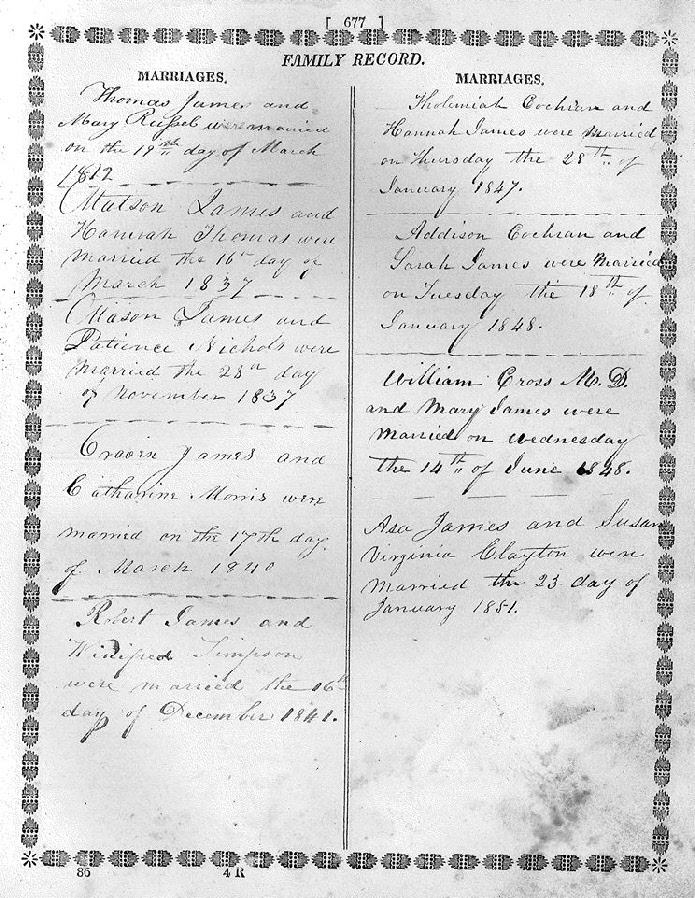 [ 677 ]
FAMILY RECORD.
MARRIAGES.
Thomas James and
Mary Russel were married
on the 19th day of March
1812
Matson James and
Hannah Thomas were
married the 16th day of
March 1837
Mason James and
Patience Nichols were
married the 28th day
of November 1837
Craven James and
Catharine Morris were
married on the 17th day
of March 1840
Robert James and
Winifred Simpson
were married the 16th
day of December 1841.
MARRIAGES.
Tholemiah Cochran and
Hannah James were Married
on Thursday the 28th of
January 1847.
Addison Cochran and
Sarah James were Married
on Tuesday the 18th of
January 1848.
William Cross M. D.
and Mary James were
Married on Wednesday
the 14th of June 1848.
Asa James and Susan
Virginia Clayton were
Married the 23 day of
January 1851.
86
4 R